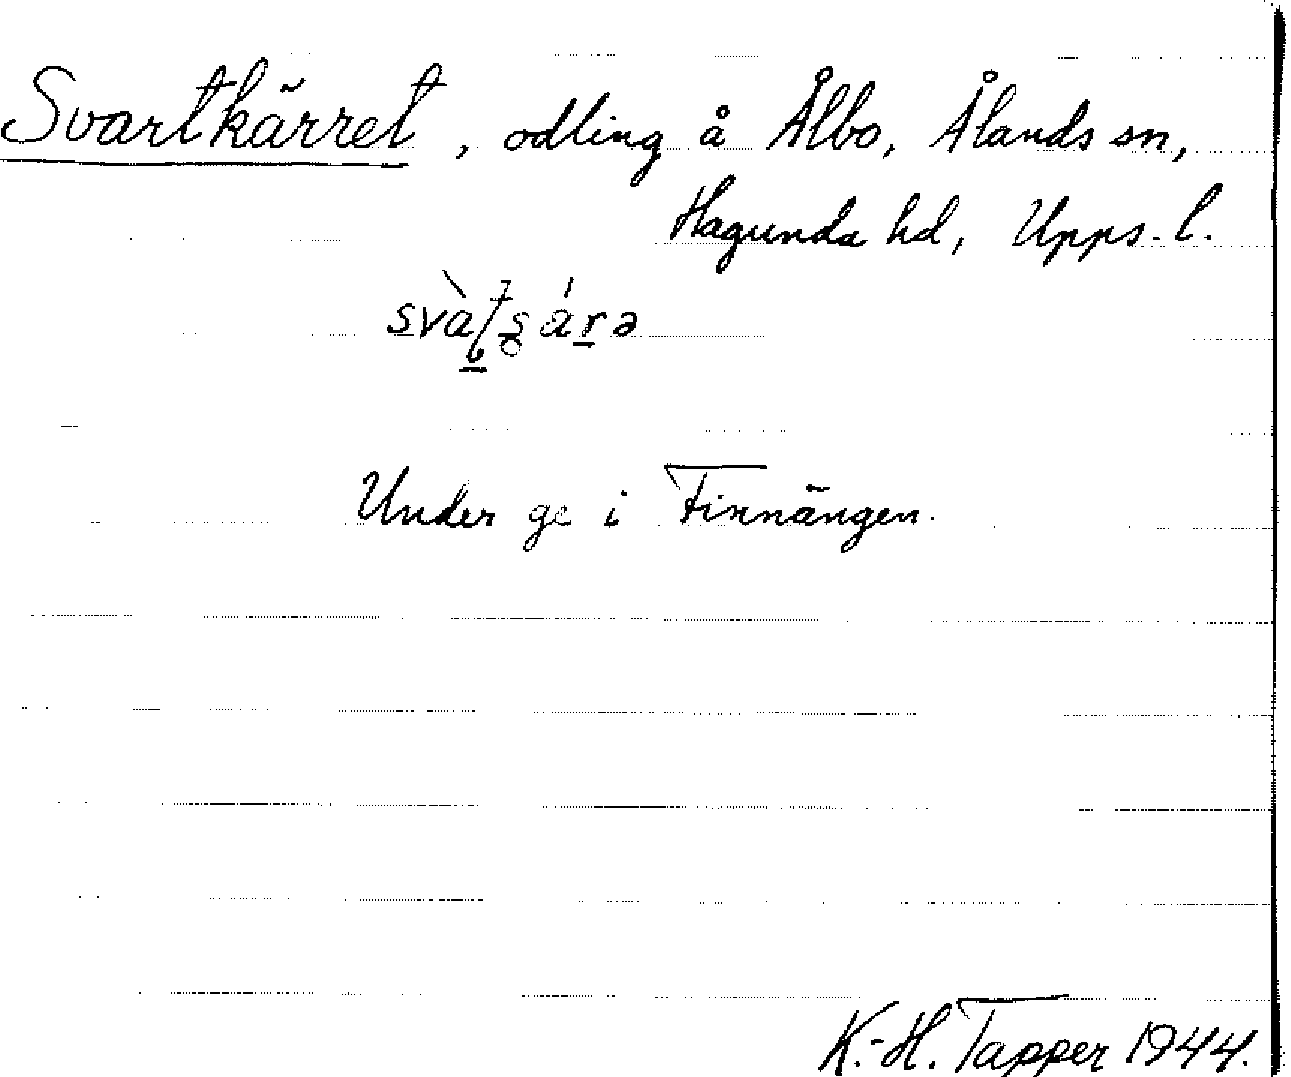 Svartkärret, odling å Ålbo, Ålands sn,
Hagunda hd, Upps. l.
Under ge i Finnängen.
K.-H. Tapper 1944.